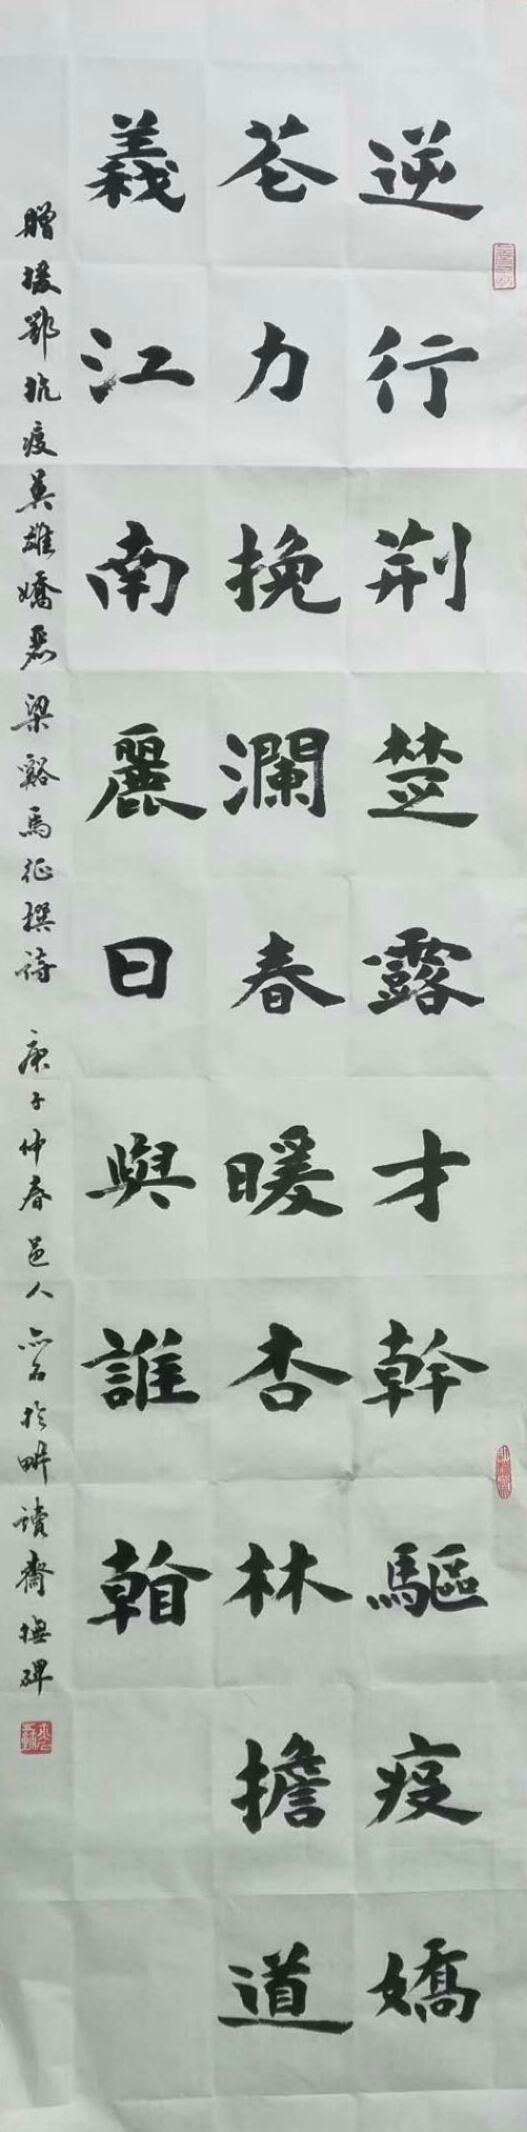 逆行荊楚露才幹驅疫嬌
花力挽瀾春暖杏林擔道
義江南麗日與誰翰
贈援鄂抗疫英雄嬌君 梁谿馬征撰詩 庚子仲春邑人 於畊讀齋撫碑